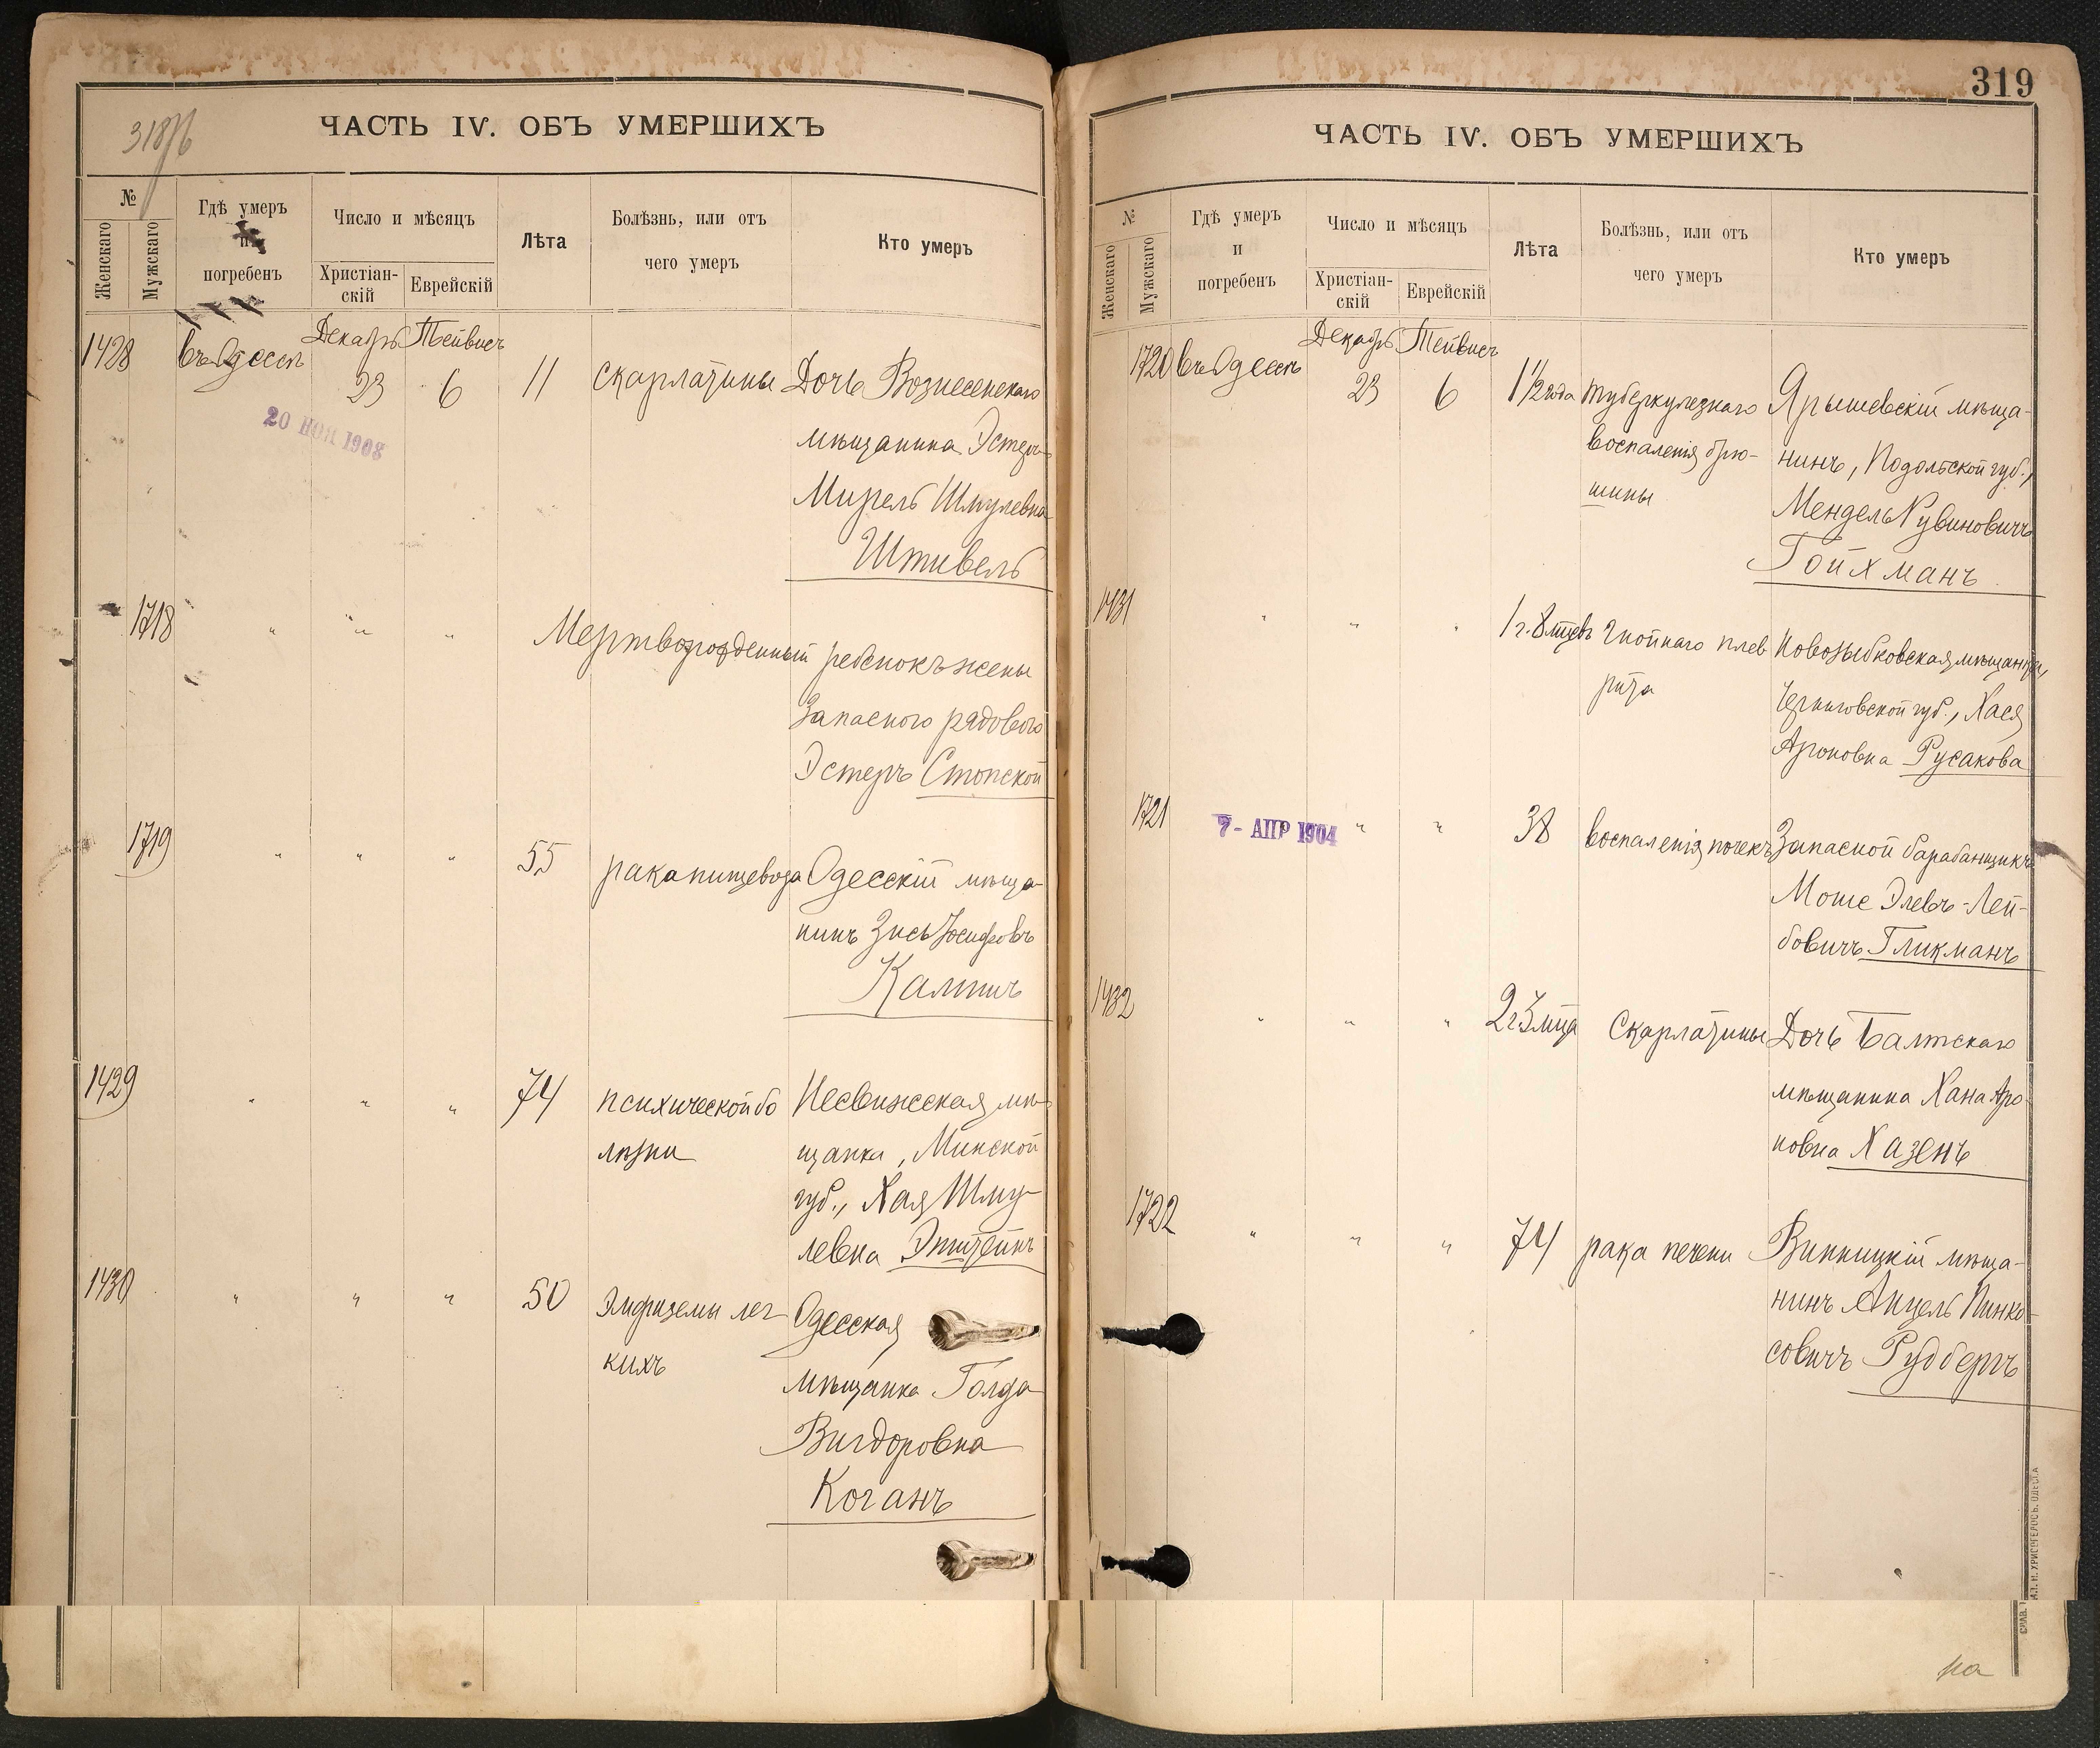 318/б
ЧАСТЬ IV. ОБЪ УМЕРШИХЪ
№
Женскаго
Мужскаго
Гдѣ умеръ
и
погребенъ
Число и мѣсяцъ
Христіан-
скій
Еврейскій
Лѣта
Болѣзнь, или отъ
чего умеръ
Кто умеръ
Декабрь Тейвисъ
1428 въ Одессѣ 23 6 11 скарлатины Дочь Вознесенскаго
20 НОЯ 1908
мѣщанина Эстеръ
Мирель Шмулевна
Штивель
1718 " " " Мертворожденный ребенокъ жены
запасного рядового
Эстеръ Стопской
1719 " " " 55 рака пищевода Одесскій мѣща-
нинъ Зись Іосифовъ
Калпинъ
1429 " " " 74 психической бо Несвижская мѣ-
лѣзни щанка, Минской
губ., Хая Шму-
левна Эпштейнъ
1430 " " " 50 эмфиземы лег- Одесская
кихъ
мѣщанка Голда
Вигдоровна
Коганъ
319
ЧАСТЬ IV. ОБЪ УМЕРШИХЪ
№
Женскаго
Мужскаго
Гдѣ умеръ
и
погребенъ
Число и мѣсяцъ
Христіан-
скій
Еврейскій
Лѣта
Болѣзнь, или отъ
чего умеръ
Кто умеръ
Декабрь Тейвисъ
1720 въ Одессѣ 23 6 1 1/2 года туберкулезнаго Ярышевскій мѣща-
воспаленія брю- нинъ, Подольской губ.,
шины Мендель Рувиновичъ
Гойхманъ
1431 " " " 1 г. 8 мцевъ гнойнаго плев Новозыбковская мѣщанка,
рита Черниговской губ., Хася
Ароновна Русакова
1721 7 - АПР 1904 " " 38 воспаленія почекъ Запасной барабанщикъ
Моше Элевъ-Лей-
бовичъ Гликманъ
1432 " " " 2 г 3 мца Скарлатины Дочь Балтскаго
мѣщанина Хана Аро-
новна Хазенъ
1722 " " " 74 рака печени Винницкій мѣща-
нинъ Анцель Пинко-
совичъ Рудбергъ
на